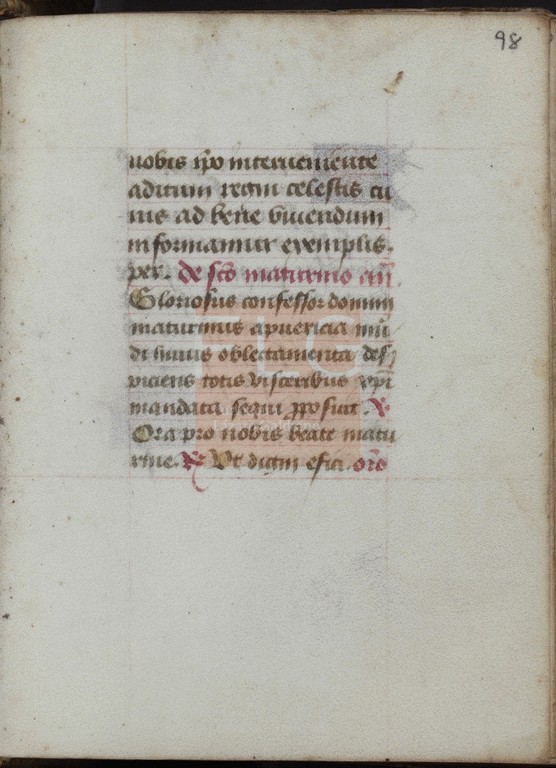 98
nobis ip̄o interueniente
aditum regni celestis cu
ius ad bene viuendum
informamur exemplis.
per. de sc̄o maturino an̄.
Gloriosus confessor domini
maturinus apuericia mū
di huius oblectamenta des
piciens totis visceribus xp̄i
mandata sequi ꝓposuit. ℣
Ora pro nobis beate matu
rine. ℟ Vt digni efici. orō